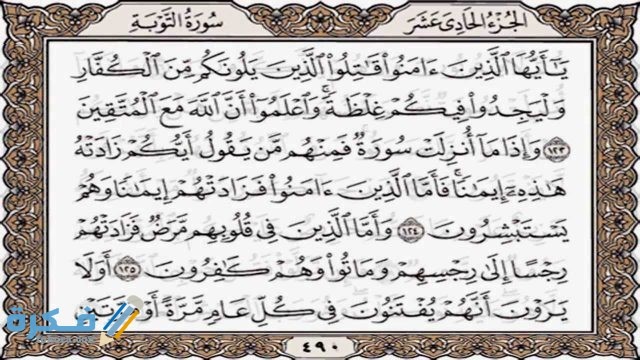 الجزء الحادي عشر
سورة التوبة
يَٰٓأَيُّهَا ٱلَّذِينَ ءَامَنُوا۟ قَٰتِلُوا۟ ٱلَّذِينَ يَلُونَكُم مِّنَ ٱلْكُفَّارِ
وَلْيَجِدُوا۟ فِيكُمْ غِلْظَةً ۚ وَٱعْلَمُوٓا۟ أَنَّ ٱللَّهَ مَعَ ٱلْمُتَّقِينَ
١٢٣ وَإِذَا مَآ أُنزِلَتْ سُورَةٌ فَمِنْهُم مَّن يَقُولُ أَيُّكُمْ زَادَتْهُ
هَٰذِهِۦٓ إِيمَٰنًا ۚ فَأَمَّا ٱلَّذِينَ ءَامَنُوا۟ فَزَادَتْهُمْ إِيمَٰنًا وَهُمْ
يَسْتَبْشِرُونَ ١٢٤ وَأَمَّا ٱلَّذِينَ فِى قُلُوبِهِم مَّرَضٌ فَزَادَتْهُمْ
رِجْسًا إِلَىٰ رِجْسِهِمْ وَمَاتُوا۟ وَهُمْ كَٰفِرُونَ ١٢٥ أَوَلَا
يَرَوْنَ أَنَّهُمْ يُفْتَنُونَ فِى كُلِّ عَامٍ مَّرَّةً أَوْ مَرَّتَيْنِ
٤٩٠
فكرة